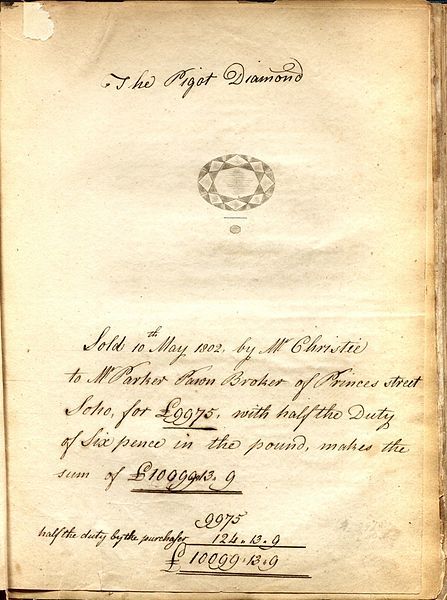 The Pigot Diamond
Sold 10th May 1802, by Mr Christie
to Mr Parker Pawn Broker of Princes street
Soho, for £9975, with half the Duty
of Six pence in the pound, makes the
sum of £10099.13.9
9975
half the duty by the purchaser 124.13.9
£10099.13.9